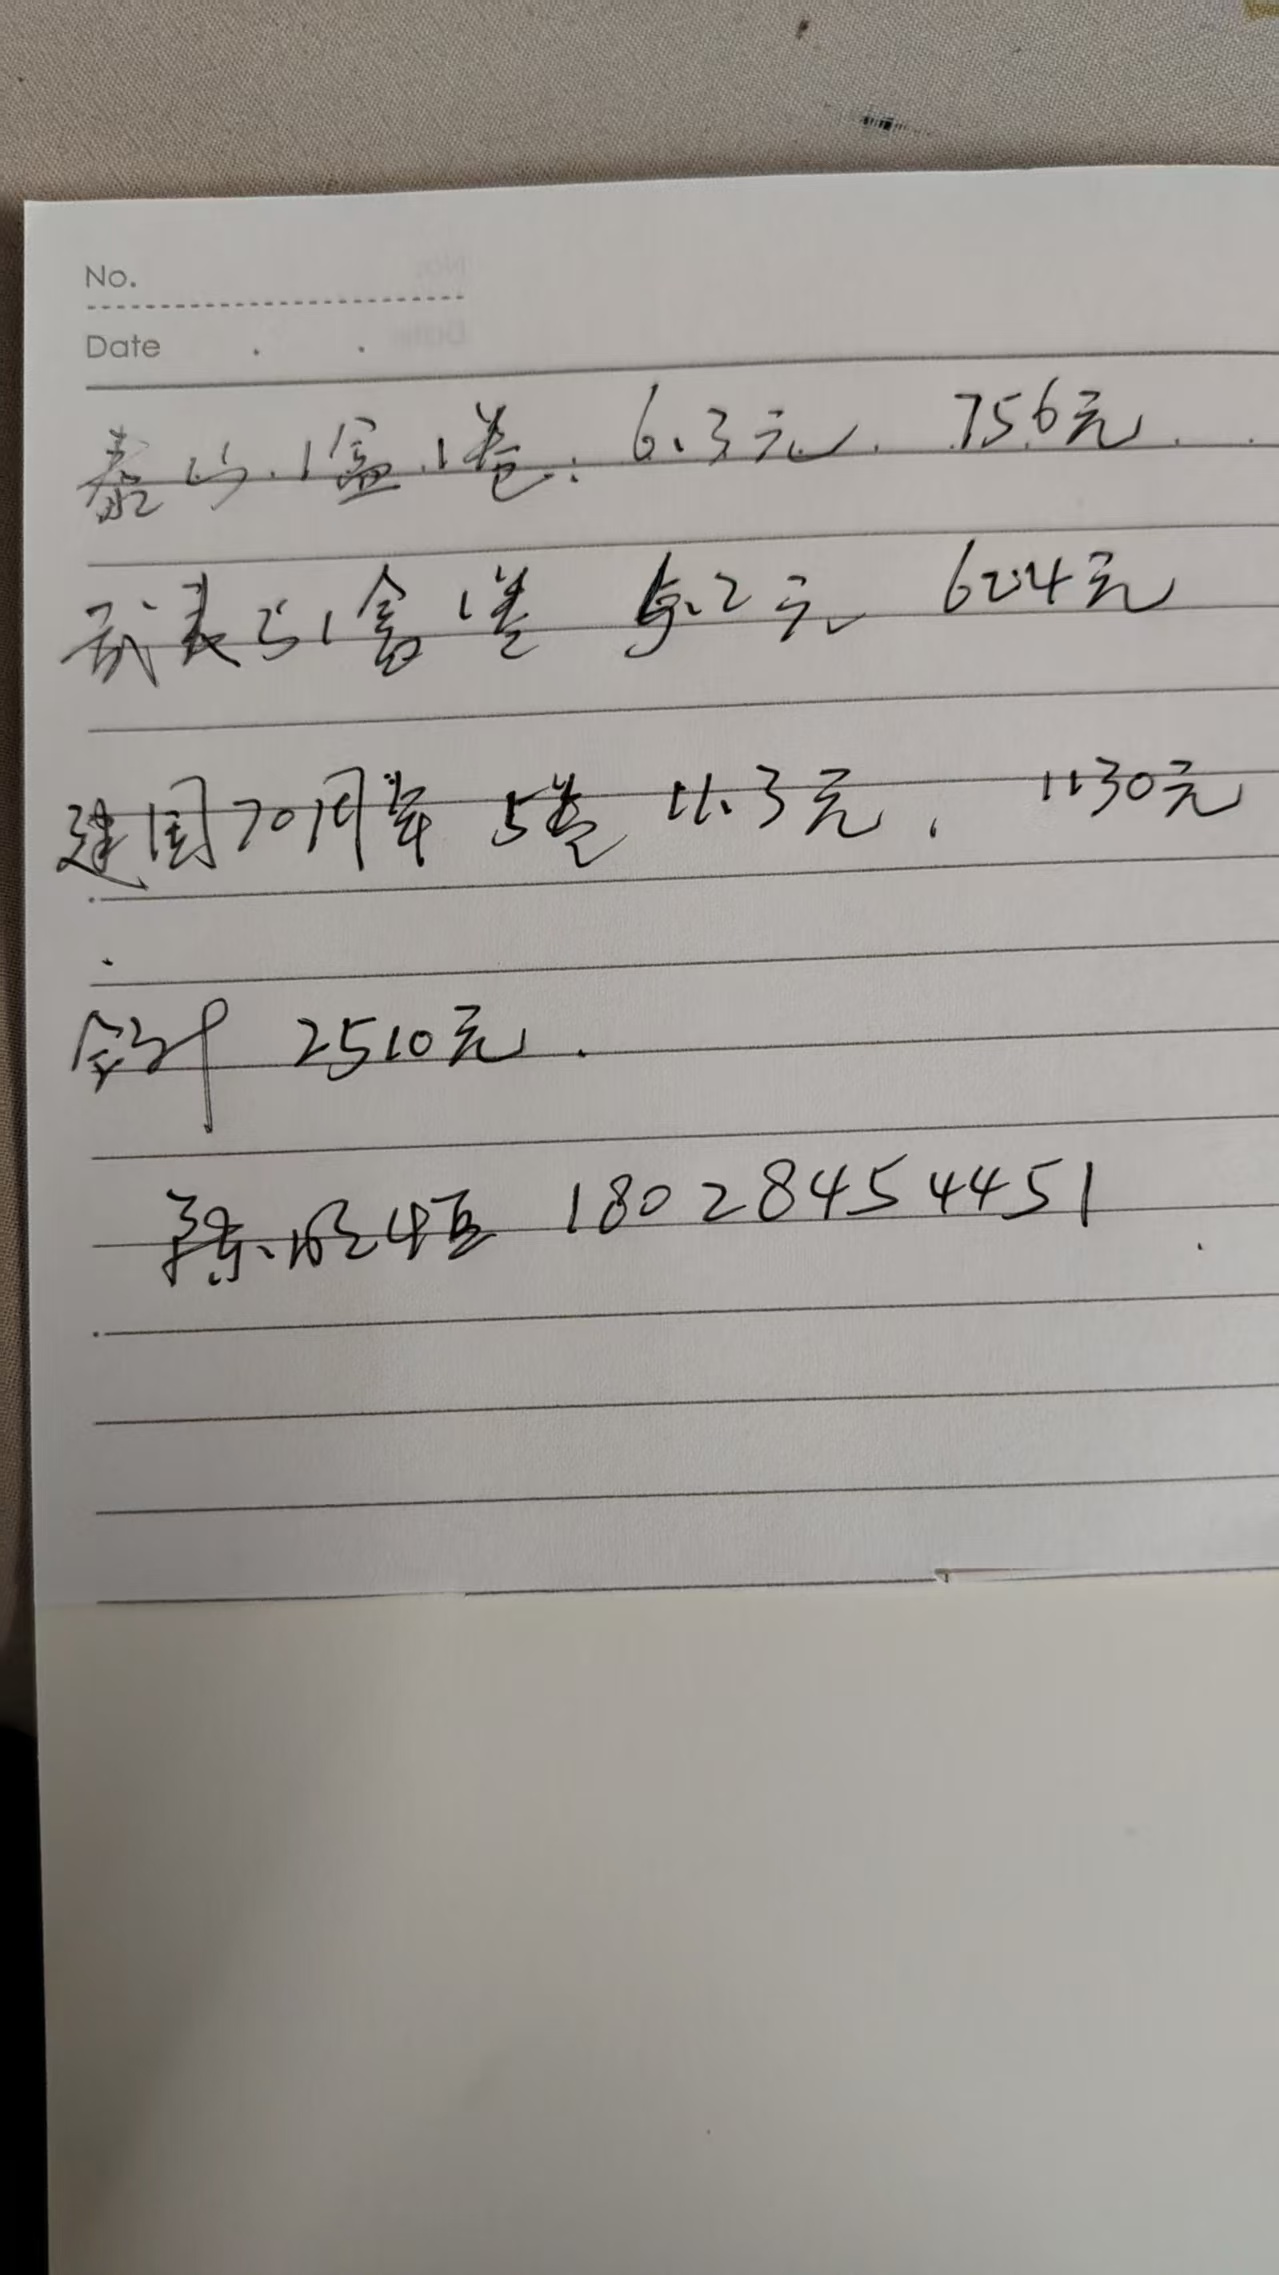 No.
Date
泰山.1盒.1卷: 6.3元. 756元
武夷山1盒1卷 5.2元 624元
建国70周年 5卷 11.3元, 1130元
合计 2510元.
18028454451